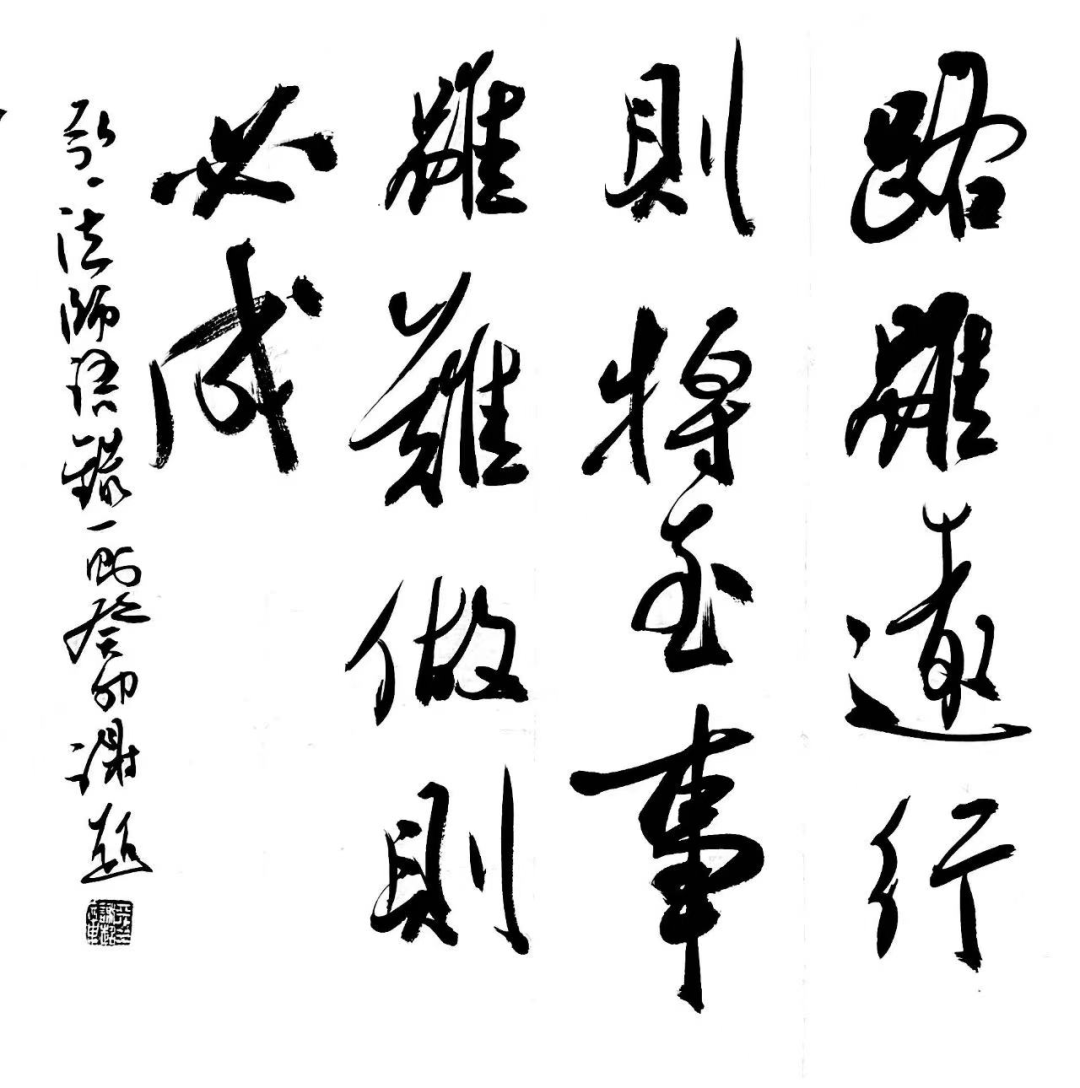 路雖遠行
則將至事
雖難做則
必成
弘一法師語錄一則癸卯謝超